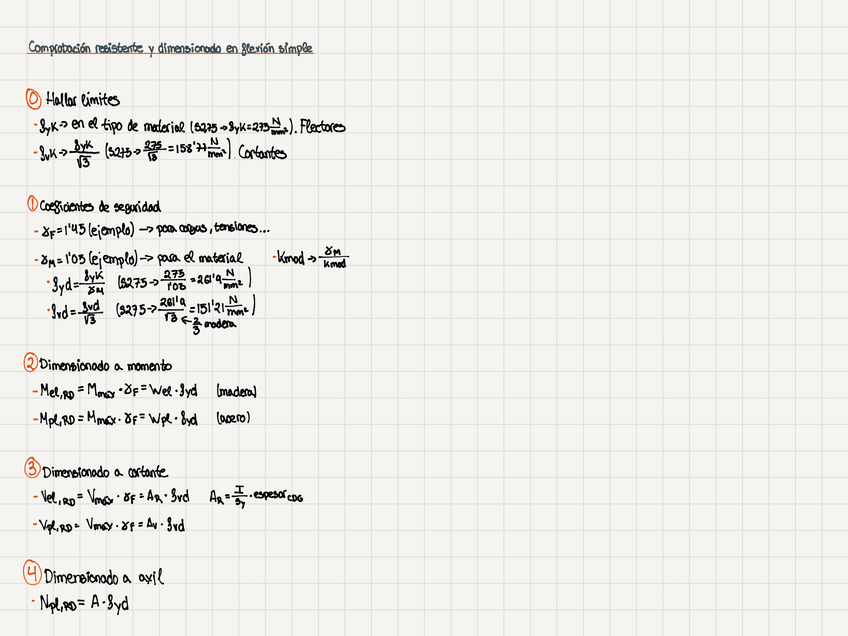 Comprobación resistente y dimensionado en flexión simple
0 Hallar límites
- fyk → en el tipo de material (S275 → fyk = 275 N/mm²). Flectores
- fvk → fyk/√3 (S275 → 275/√3 = 158'77 N/mm²). Cortantes
1 Coeficientes de seguridad
- γF = 1'45 (ejemplo) → para cargas, tensiones...
- γM = 1'05 (ejemplo) → para el material - Kmod → γM/Kmod
· fyd = fyk/γM (S275 → 275/1'05 = 261'9 N/mm²)
· fvd = fyd/√3 (S275 → 261'9/√3 = 151'21 N/mm²)
← 2/3 madera
2 Dimensionado a momento
- Mel,RD = Mmáx · γF = Wel · fyd (madera)
- Mpl,RD = Mmáx · γF = Wpl · fyd (acero)
3 Dimensionado a cortante
- Vel,RD = Vmáx · γF = AR · fvd AR = I/Sy · espesor CDG
- Vpl,RD = Vmáx · γF = Av · fvd
4 Dimensionado a axil
· Npl,RD = A · fyd